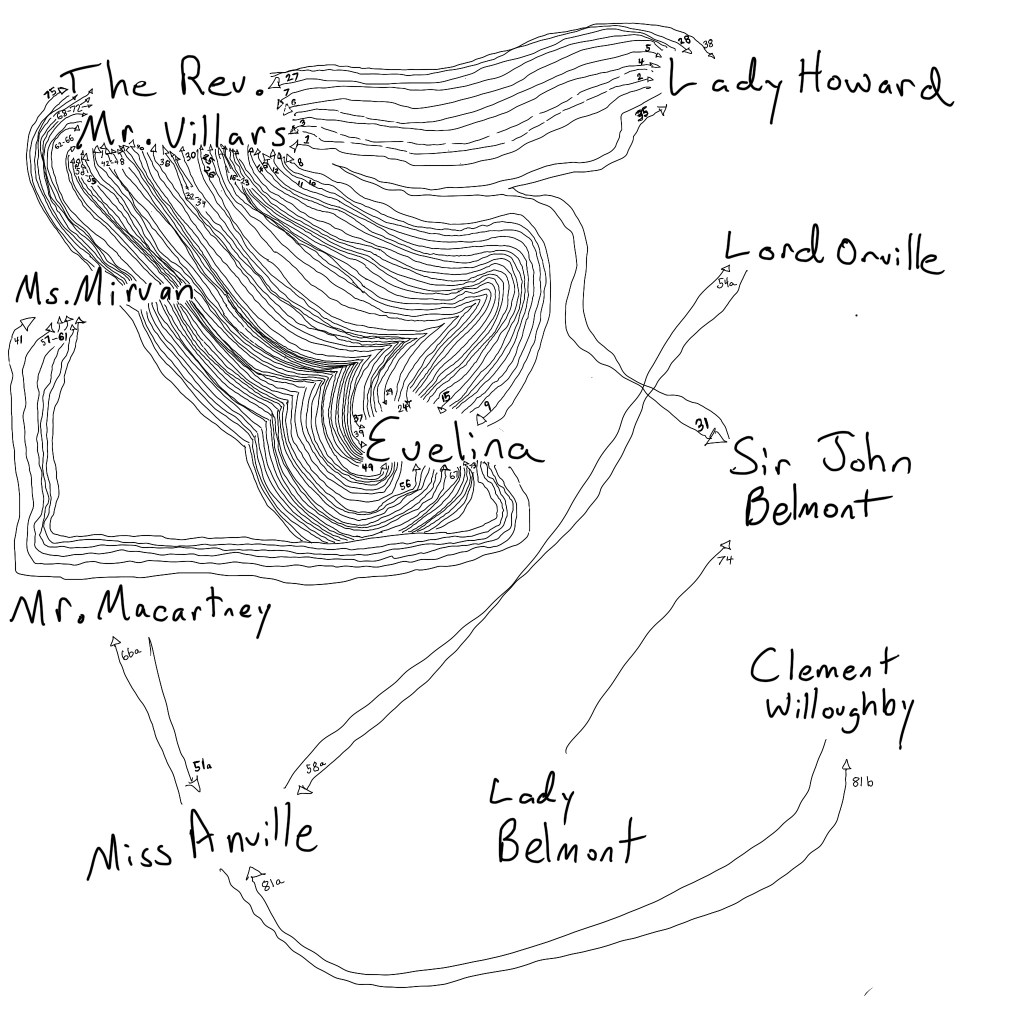 The Rev.
Mr. Villars
Lady Howard
Ms. Mirvan
Lord Orville
Evelina
Sir John
Belmont
Mr. Macartney
Clement
Willoughby
Lady
Belmont
Miss Anville
27
7
6
3
1
5
4
2
28
38
35
75
68-72
62-66
42-48
36
30
32-34
8
11
10
41
57-61
29
24
15
9
37
39
49
56
67
54a
31
74
66a
51a
58a
81a
81b